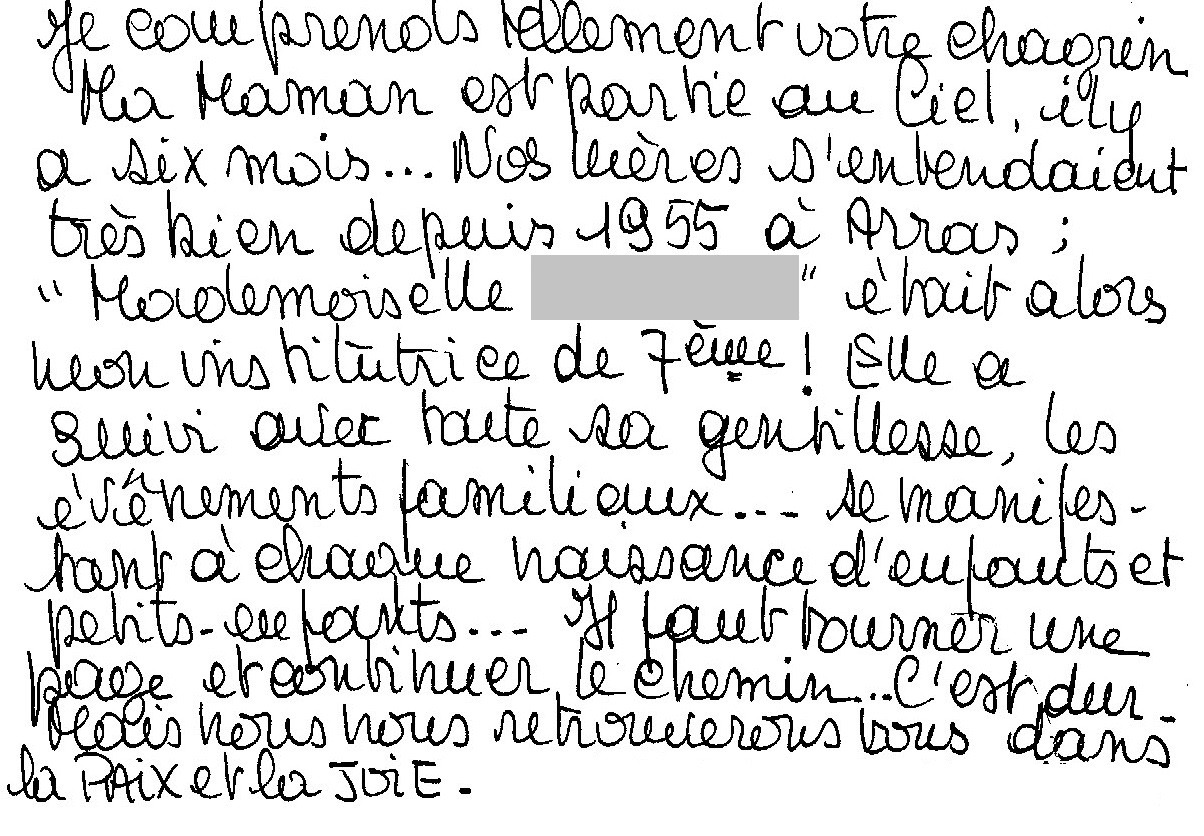 Je comprends tellement votre chagrin
Ma Maman est partie au Ciel, il y
a six mois... Nos mères s'entendaient
très bien depuis 1955 à Arras ;
"Mademoiselle " était alors
mon institutrice de 7ème ! Elle a
suivi avec toute sa gentillesse, les
évênements familiaux... se manifes-
tant à chaque naissance d'enfants et
petits-enfants... Il faut tourner une
page et continuer le chemin... C'est dur -
Mais nous nous retrouverons tous dans
la PAIX et la JOIE -